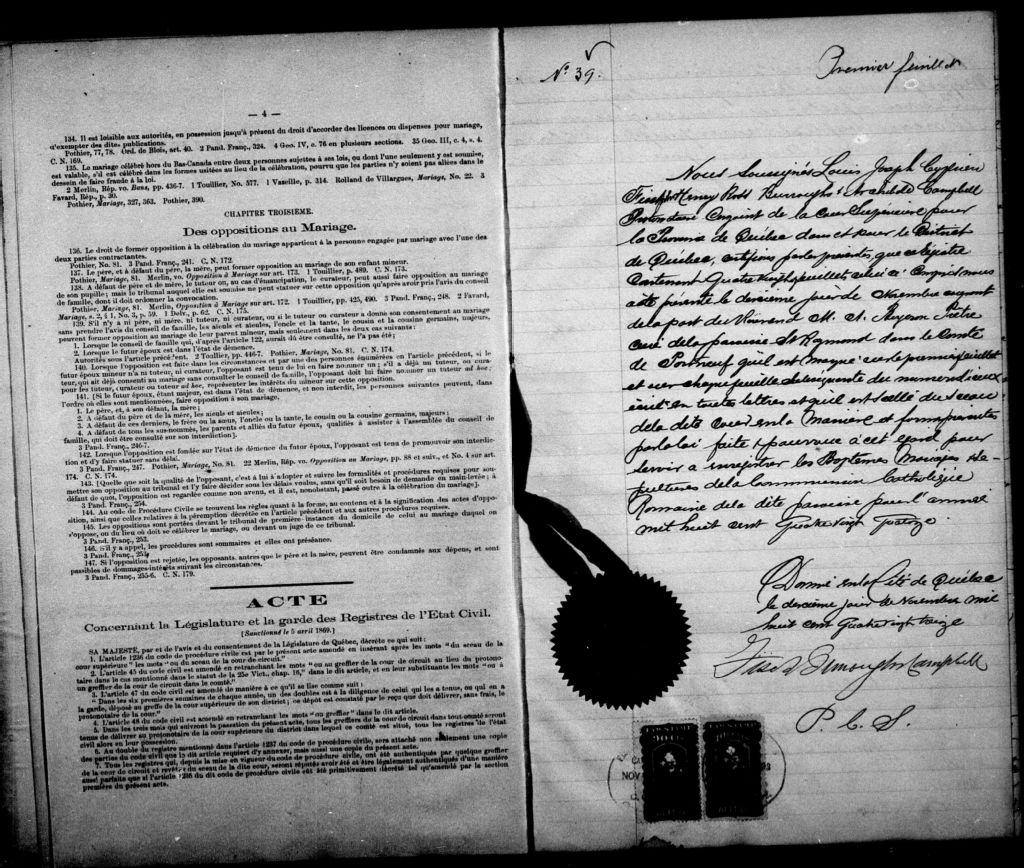 — 4 —
134. Il est loisible aux autorités, en possession jusqu'à présent du droit d'accorder des licences ou dispenses pour mariage,
d'exempter des dites publications.
Pothier, 77, 78. Ord. de Blois, art. 40. 2 Pand. Franç., 324. 4 Geo. IV, c. 76 en plusieurs sections. 35 Geo. III, c. 4, s. 4.
C. N. 169.
135. Le mariage célébré hors du Bas-Canada entre deux personnes sujettes à ses lois, ou dont l'une seulement y est soumise,
est valable, s'il est célébré dans les formes usitées au lieu de la célébration, pourvu que les parties n'y soient pas allées dans le
dessein de faire fraude à la loi.
2 Merlin, Rép. vo. Bans, pp. 436-7. 1 Touillier, No. 577. 1 Vaseille, p. 314. Rolland de Villargues, Mariage, No. 22. 3
Favard, Rép., p. 30.
Pothier, Mariage, 327, 363. Pothier, 390.
CHAPITRE TROISIEME.
Des oppositions au Mariage.
136. Le droit de former opposition à la célébration du mariage appartient à la personne engagée par mariage avec l'une des
deux parties contractantes.
Pothier, No. 81. 3 Pand. Franç., 241. C. N. 172.
137. Le père, et à défaut du père, la mère, peut former opposition au mariage de son enfant mineur.
Pothier, Mariage, 81. Merlin, vo. Opposition à Mariage sur art. 173. 1 Touillier, p. 489. C. N. 173.
138. A défaut de père et de mère, le tuteur ou, au cas d'émancipation, le curateur, peut aussi faire opposition au mariage
de son pupille; mais le tribunal auquel elle est soumise ne peut statuer sur cette opposition qu'après avoir pris l'avis du conseil
de famille, dont il doit ordonner la convocation.
Pothier, Mariage, 81. Merlin, Opposition à Mariage sur art. 172. 1 Touillier, pp. 425, 490. 3 Pand. Franç., 248. 2 Favard,
Mariage, s. 2, § 1, No. 3, p. 59. 1 Delv., p. 62. C. N. 175.
139. S'il n'y a ni père, ni mère, ni tuteur, ni curateur, ou si le tuteur ou curateur a donné son consentement au mariage
sans prendre l'avis du conseil de famille, les aïeuls et aïeules, l'oncle et la tante, le cousin et la cousine germains, majeurs,
peuvent former opposition au mariage de leur parent mineur, mais seulement dans les deux cas suivants:
1. Lorsque le conseil de famille qui, d'après l'article 122, aurait dû être consulté, ne l'a pas été;
2. Lorsque le futur époux est dans l'état de démence.
Autorités sous l'article précédent. 2 Toullier, pp. 446-7. Pothier, Mariage, No. 81. C. N. 174.
140. Lorsque opposition est faite dans les circonstances et par une des personnes énumérées en l'article précédent, si le
futur époux mineur n'a ni tuteur, ni curateur, l'opposant est tenu de lui en faire nommer un; s'il a déjà un tuteur, ou cura-
teur, qui ait déjà consenti au mariage sans consulter le conseil de famille, l'opposant doit lui faire nommer un tuteur ad hoc;
pour les tuteur, curateur ou tuteur ad hoc, représenter les intérêts du mineur sur cette opposition.
141. [Si le futur époux, étant majeur, est dans l'état de démence, et non interdit, les personnes suivantes peuvent, dans
l'ordre où elles sont mentionnées, faire opposition à son mariage.
1. Le père, et, à son défaut, la mère;
2. A défaut du père et de la mère, les aïeuls et aïeules;
3. A défaut de ces derniers, le frère ou la sœur, l'oncle ou la tante, le cousin ou la cousine germains, majeurs;
4. A défaut de tous les sus-nommés, les parents et alliés du futur époux, qualifiés à assister à l'assemblée du conseil de
famille, qui doit être consulté sur son interdiction].
3 Pand. Franç., 246-7.
142. Lorsque l'opposition est fondée sur l'état de démence du futur époux, l'opposant est tenu de promouvoir son interdic-
tion et d'y faire statuer sans délai.
3 Pand. Franç., 247. Pothier, Mariage, No. 81. 22 Merlin, Rép. vo. Opposition au Mariage, pp. 88 et suiv., et No. 4 sur art.
174. C. N. 174.
143. [Quelle que soit la qualité de l'opposant, c'est à lui à adopter et suivre les formalités et procédures requises pour sou-
mettre son opposition au tribunal et l'y faire décider sous les délais voulus, sans qu'il soit besoin de demande en main-levée; à
défaut de quoi, l'opposition est regardée comme non avenu, et il est, nonobstant, passé outre à la célébration du mariage].
3 Pand. Franç., 254.
144. Au code de Procédure Civile se trouvent les règles quant à la forme, au contenu et à la signification des actes d'oppo-
sition, ainsi que celles relatives à la péremption décrétée en l'article précédent et aux autres procédures requises.
145. Les oppositions sont portées devant le tribunal de première instance du domicile de celui au mariage duquel on
s'oppose, ou du lieu où doit se célébrer le mariage, ou devant un juge de ce tribunal.
3 Pand. Franç., 253.
146. S'il y a appel, les procédures sont sommaires et elles ont préséance.
3 Pand. Franç., 255.
147. Si l'opposition est rejetée, les opposants, autres que le père et la mère, peuvent être condamnés aux dépens, et sont
passibles de dommages-intérêts suivant les circonstances.
3 Pand. Franç., 255-6. C. N. 179.
ACTE
Concernant la Législature et la garde des Registres de l'Etat Civil.
[Sanctionné le 5 avril 1869.]
SA MAJESTÉ, par et de l'avis et du consentement de la Législature de Québec, décrète ce qui suit:
1. L'article 1236 du code de procédure civile est par le présent acte amendé en insérant après les mots "du sceau de la
cour supérieure" les mots "ou du sceau de la cour de circuit."
2. L'article 45 du code civil est amendé en retranchant les mots "ou au greffier de la cour de circuit au lieu du protono-
taire dans le cas mentionné dans le statut de la 25e Vict., chap. 16," dans le dit article, et en leur substituant les mots "ou à
un greffier de la cour de circuit dans le comté."
3. L'article 47 du code civil est amendé de manière à ce qu'il se lise comme suit:
"Dans les six premières semaines de chaque année, un des doubles est à la diligence de celui qui les a tenus, ou qui en a
la garde, déposé au greffe de la cour supérieure de son district; ce dépôt est constaté par le reçu que doit délivrer, sans frais, le
protonotaire de la cour."
4. L'article 48 du code civil est amendé en retranchant les mots "ou greffier" dans le dit article.
5. Dans les trois mois qui suivront la passation du présent acte, tous les greffiers de la cour de circuit dans tout comté seront
tenus de délivrer au protonotaire de la cour supérieure du district dans lequel ce comté est situé, tous les registres de l'état
civil alors en leur possession.
6. Au double du registre mentionné dans l'article 1237 du code de procédure civile, sera attaché non seulement une copie
des parties du code civil que le dit article requiert d'y annexer, mais aussi une copie du présent acte.
7. Tous les registres qui, depuis la mise en vigueur du code de procédure civile, ont été authentiqués par quelque greffier
de la cour de circuit et revêtus du sceau de la dite cour, seront réputés avoir été et être légalement authentiqués d'une manière
aussi parfaite que si l'article 1236 du dit code de procédure civile eût été primitivement décrété tel qu'amendé par la section
première du présent acte.
No 39.
Premier feuillet
Nous Soussignés Louis Joseph Cyprien
Fiset, Henry Ross Burroughs & Archibald Campbell
Protonotaire Conjoint de la Cour Supérieure pour
la Province de Québec dans et pour le District
de Québec, certifions par les présentes, que ce Régistre
Contenant Quatre vingt feuillets celui ci compris nous
a été présenté le deuxième jour de Novembre courant
de la part du Révérend M. A. Bergeron Prêtre
Curé de la paroisse St Raymond dans le Comté
de Portneuf qu'il est marqué sur le premier feuillet
et sur chaque feuillet subséquent du numéro d'iceux
écrit en toutes lettres et qu'il est scellé du sceau
de la dite Cour en la Manière et forme prescrites
par la loi faite & pourvue à cet égard pour
servir à enregistrer les Baptêmes Mariages Sé-
pultures de la Communion Catholique
Romaine de la dite paroisse pour l'année
mil huit cent Quatre vingt Quatorze
Donné en la Cité de Québec
le deuxième jour de Novembre mil
huit cent Quatre vingt treize
Fiset Burroughs Campbell
P. C. S.
NOV